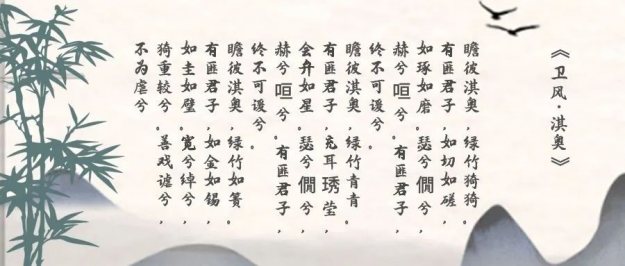 《卫风·淇奥》
瞻彼淇奥，绿竹猗猗。
有匪君子，如切如磋，
如琢如磨。瑟兮僩兮，
赫兮咺兮。有匪君子，
终不可谖兮。
瞻彼淇奥，绿竹青青。
有匪君子，充耳琇莹，
会弁如星。瑟兮僩兮，
赫兮咺兮。有匪君子，
终不可谖兮。
瞻彼淇奥，绿竹如箦。
有匪君子，如金如锡，
如圭如璧。宽兮绰兮，
猗重较兮。善戏谑兮，
不为虐兮。